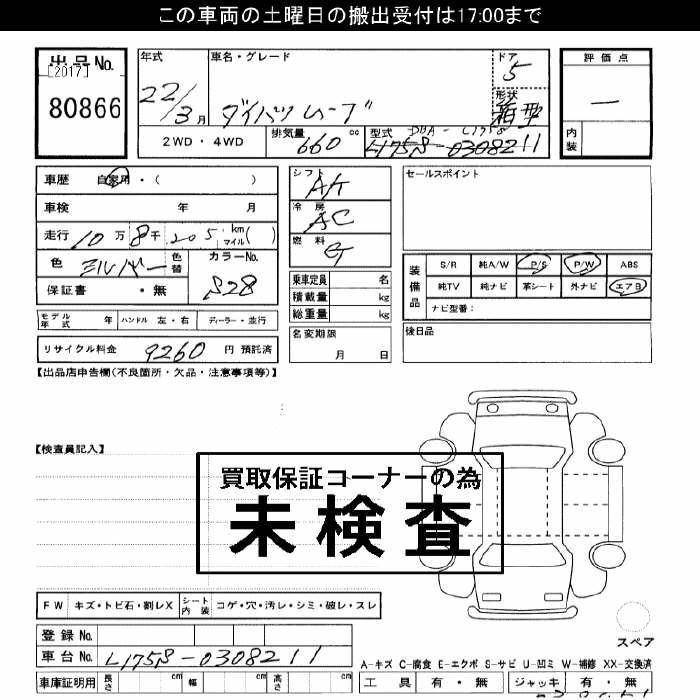 この車両の土曜日の搬出受付は17:00まで
出品No.
[2017]
80866
年式 22/3月
車名・グレード ダイハツムーブ
ドア 5
形状 箱型
評価点 —
内装
2WD・4WD
排気量 660 cc
型式 DBA-L175S
L175S-0308211
車歴 自家用・( )
車検 年 月
走行 10万 8千 205 km マイル( )
色 シルバー 色替 カラーNo. S28
保証書 ・無
モデル年式 年 ハンドル 左・右 ディーラー・並行
リサイクル料金 9260 円 預託済
シフト AT
冷房 AC
燃料 G
乗車定員 名
積載量 kg
総重量 kg
名変期限 月 日
セールスポイント
装備品
S/R 純A/W P/S P/W ABS
純TV 純ナビ 革シート 外ナビ エアB
ナビ型番:
後日品
【出品店申告欄(不良箇所・欠品・注意事項等)】
【検査員記入】
買取保証コーナーの為
未検査
FW キズ・トビ石・割レX シート内装 コゲ・穴・汚レ・シミ・破レ・スレ
登録No.
車台No. L175S-0308211
車庫証明用 長さ cm 幅 cm 高さ cm
スペア
A-キズ C-腐食 E-エクボ S-サビ U-凹ミ W-補修 XX-交換済
工具 有・無 ジャッキ 有・無